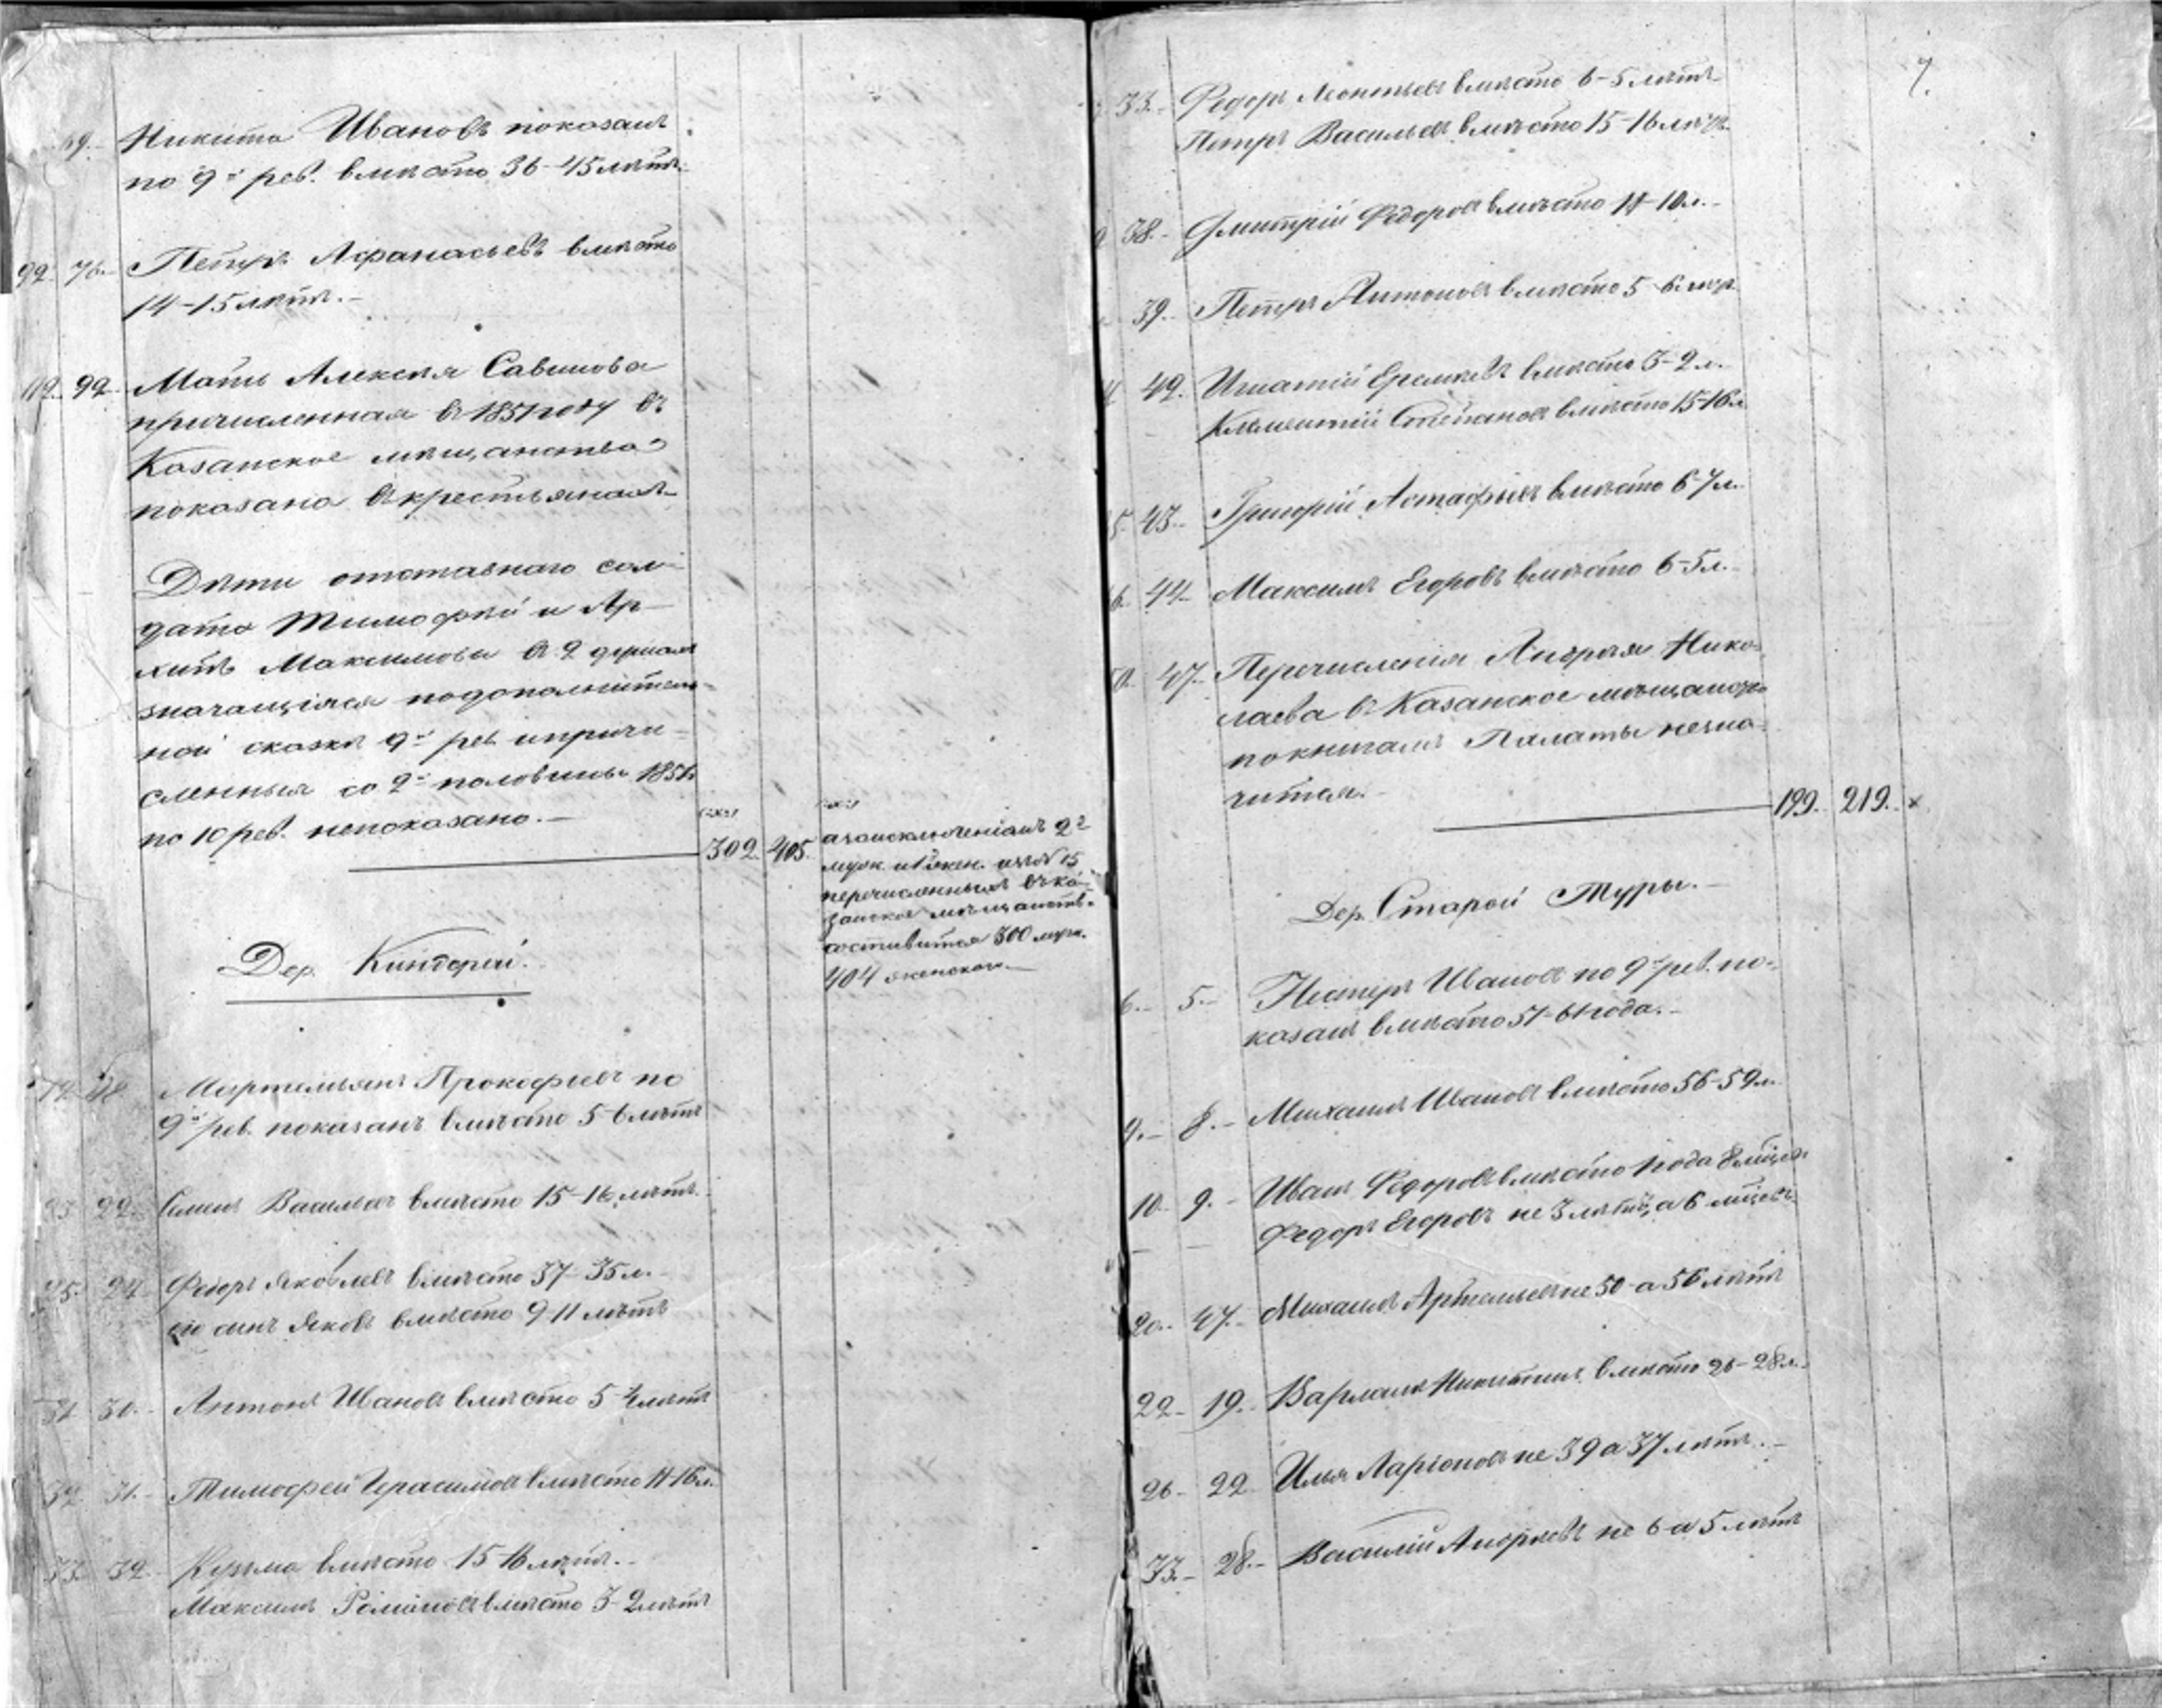 69. Никита Ивановъ показанъ
по 9й рев. вмѣсто 36-45 лѣтъ.
92. 76. Петръ Афанасьевъ вмѣсто
14-15 лѣтъ.-
112. 92. Мать Алексѣя Савинова
причисленная въ 1851 году въ
Казанское мѣщанство
показана въ крестьянахъ
Дѣти отставнаго сол-
дата Тимофѣй и Ар-
хипъ Максимовы въ 2 душахъ
значащіяся по дополнитель-
ной сказкѣ 9й рев. и причи-
сленныя со 2й половины 1851
по 10 рев. не показано.-
302. 405.
а за исключеніемъ 2х
муж. и 1 жен. изъ № 15
перечисленныхъ въ Ка-
занское мѣщанство
составится 300 муж.
404 женскаго.-
Дер. Киндерей.
Мартемьянъ Прокофьевъ по
9й рев. показанъ вмѣсто 5-6 лѣтъ
23. 22. Семенъ Васильевъ вмѣсто 15-16 лѣтъ.
25. 24. Федоръ Яковлевъ вмѣсто 37-35 л.-
его сынъ Яковъ вмѣсто 9-11 лѣтъ
31. 30. Антонъ Ивановъ вмѣсто 5 лѣтъ
32. 31. Тимофей Герасимовъ вмѣсто 11-16 л.
33. 32. Кузьма вмѣсто 15-16 лѣтъ.-
Максимъ Романовъ вмѣсто 3-2 лѣтъ
7.
33. Федоръ Леонтьевъ вмѣсто 6-5 лѣтъ
Петръ Васильевъ вмѣсто 15-16 лѣтъ.
38. Дмитрій Федоровъ вмѣсто 11-10 л.-
39. Петръ Антоновъ вмѣсто 5-6
42. Игнатій Еремѣевъ вмѣсто 3-2 л.
Климентій Степановъ вмѣсто 15-16 л.
43. Григорій Астафьевъ вмѣсто 6-7 л.
44. Максимъ Егоровъ вмѣсто 6-5 л.
47. Перечисленія Андрея Нико-
лаева въ Казанское мѣщанство
по книгамъ Палаты не зна-
чится.-
199. 219. х
Дер. Старой Туры.-
6.- 5.- Нестеръ Ивановъ по 9й рев. по-
казанъ вмѣсто 51-61 года.-
9.- 8.- Михаилъ Ивановъ вмѣсто 56-59 л.
10. 9.- Иванъ Федоровъ вмѣсто 1 года 8 мѣся.
Федоръ Егоровъ не 3 лѣтъ, а 6 мѣцевъ.
20.- 17.- Михаилъ Артемьевъ не 50-а 56 лѣтъ
22.- 19.- Варламъ Никитинъ вмѣсто 26-28 л.
26.- 22. Илья Ларіоновъ не 39 а 37 лѣтъ.-
33.- 28.- Василій Андреевъ не 6-а 5 лѣтъ